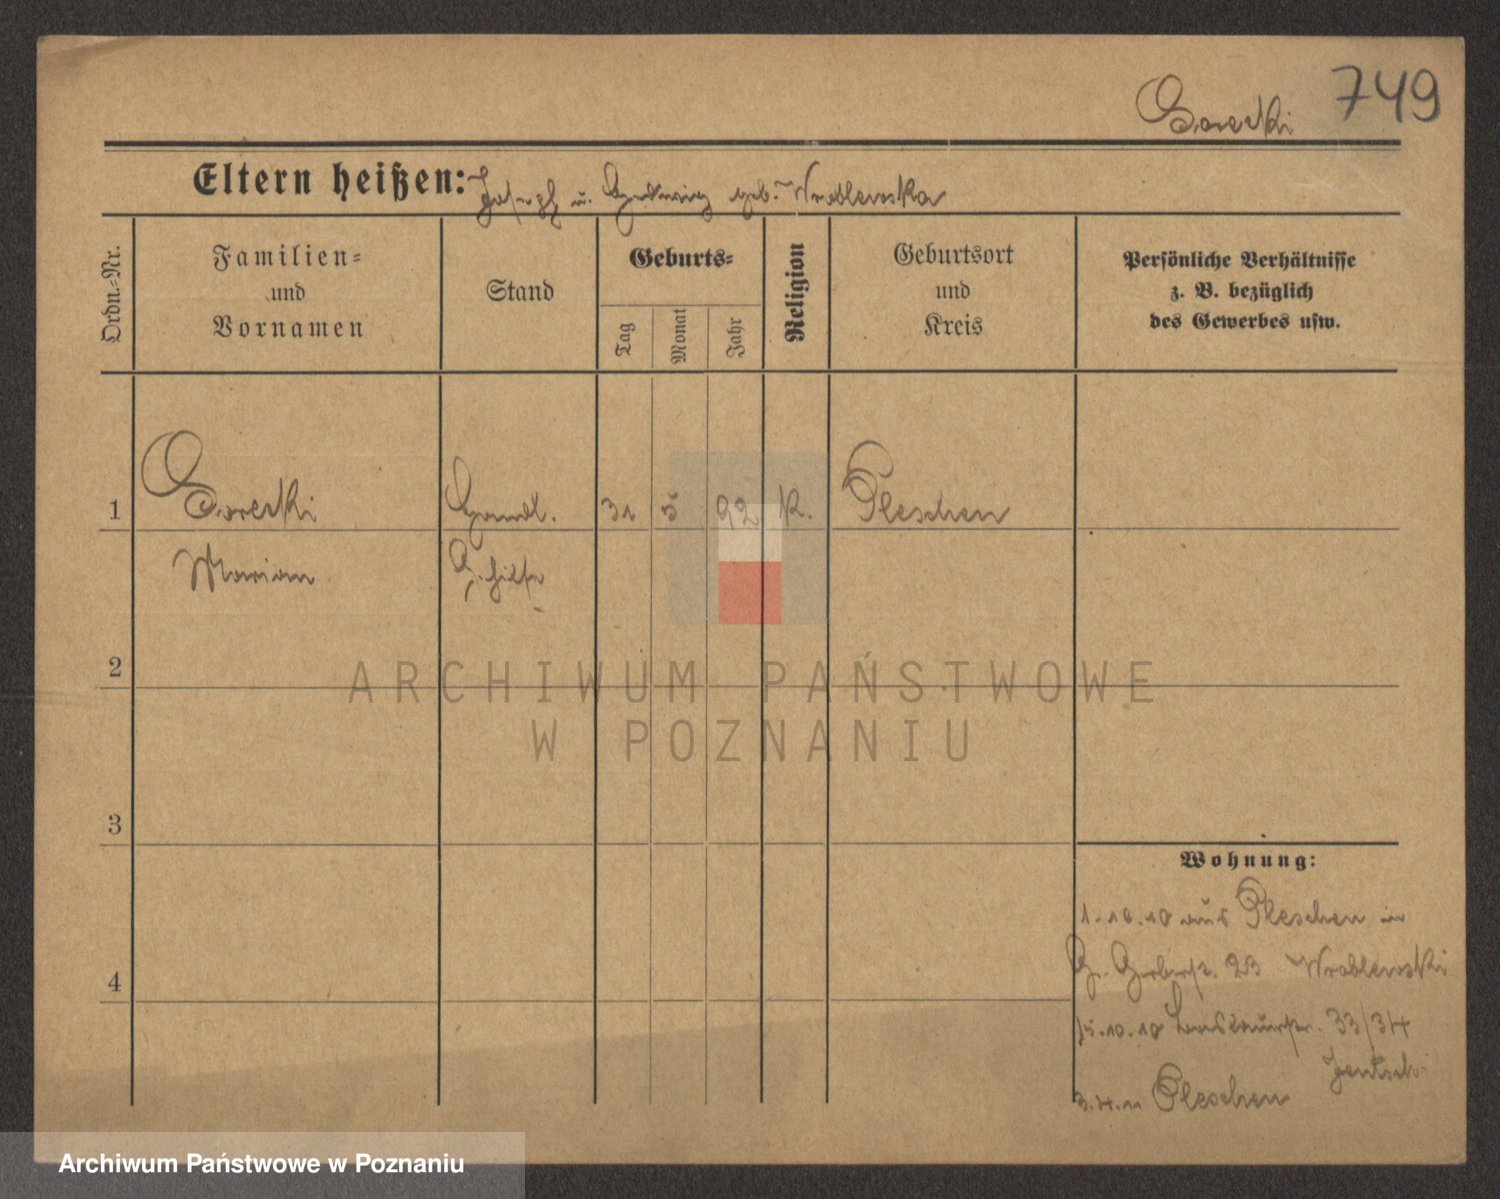 749
Gorecki
Eltern heißen: Joseph u. Hedwig geb. Wroblewska
Ordn.-Nr.
Familien- und Vornamen
Stand
Geburts-
Tag
Monat
Jahr
Religion
Geburtsort und Kreis
Persönliche Verhältnisse
z. B. bezüglich
des Gewerbes usw.
1
Gorecki
Handl.
31
5
92
K.
Pleschen
Marian
Gehilfe
2
ARCHIWUM PAŃSTWOWE
W POZNANIU
3
Wohnung:
1.10.10 aus Pleschen in
Gr. Gerberst. 23 Wroblewski
4
15.10.10 33/34
Jentsch
3.4.11 Pleschen
Archiwum Państwowe w Poznaniu